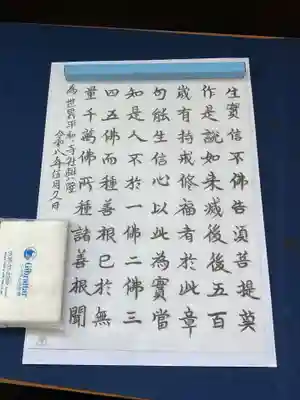 生實信不佛告須菩提莫
作是說如来滅後後五百
歳有持戒修福者於此章
句能生信心以此為實當
知是人不於一佛二佛三
四五佛而種善根已於無
量千萬佛所種諸善根聞
為世界平和寺社興隆
令和八年月日
Gibraltar